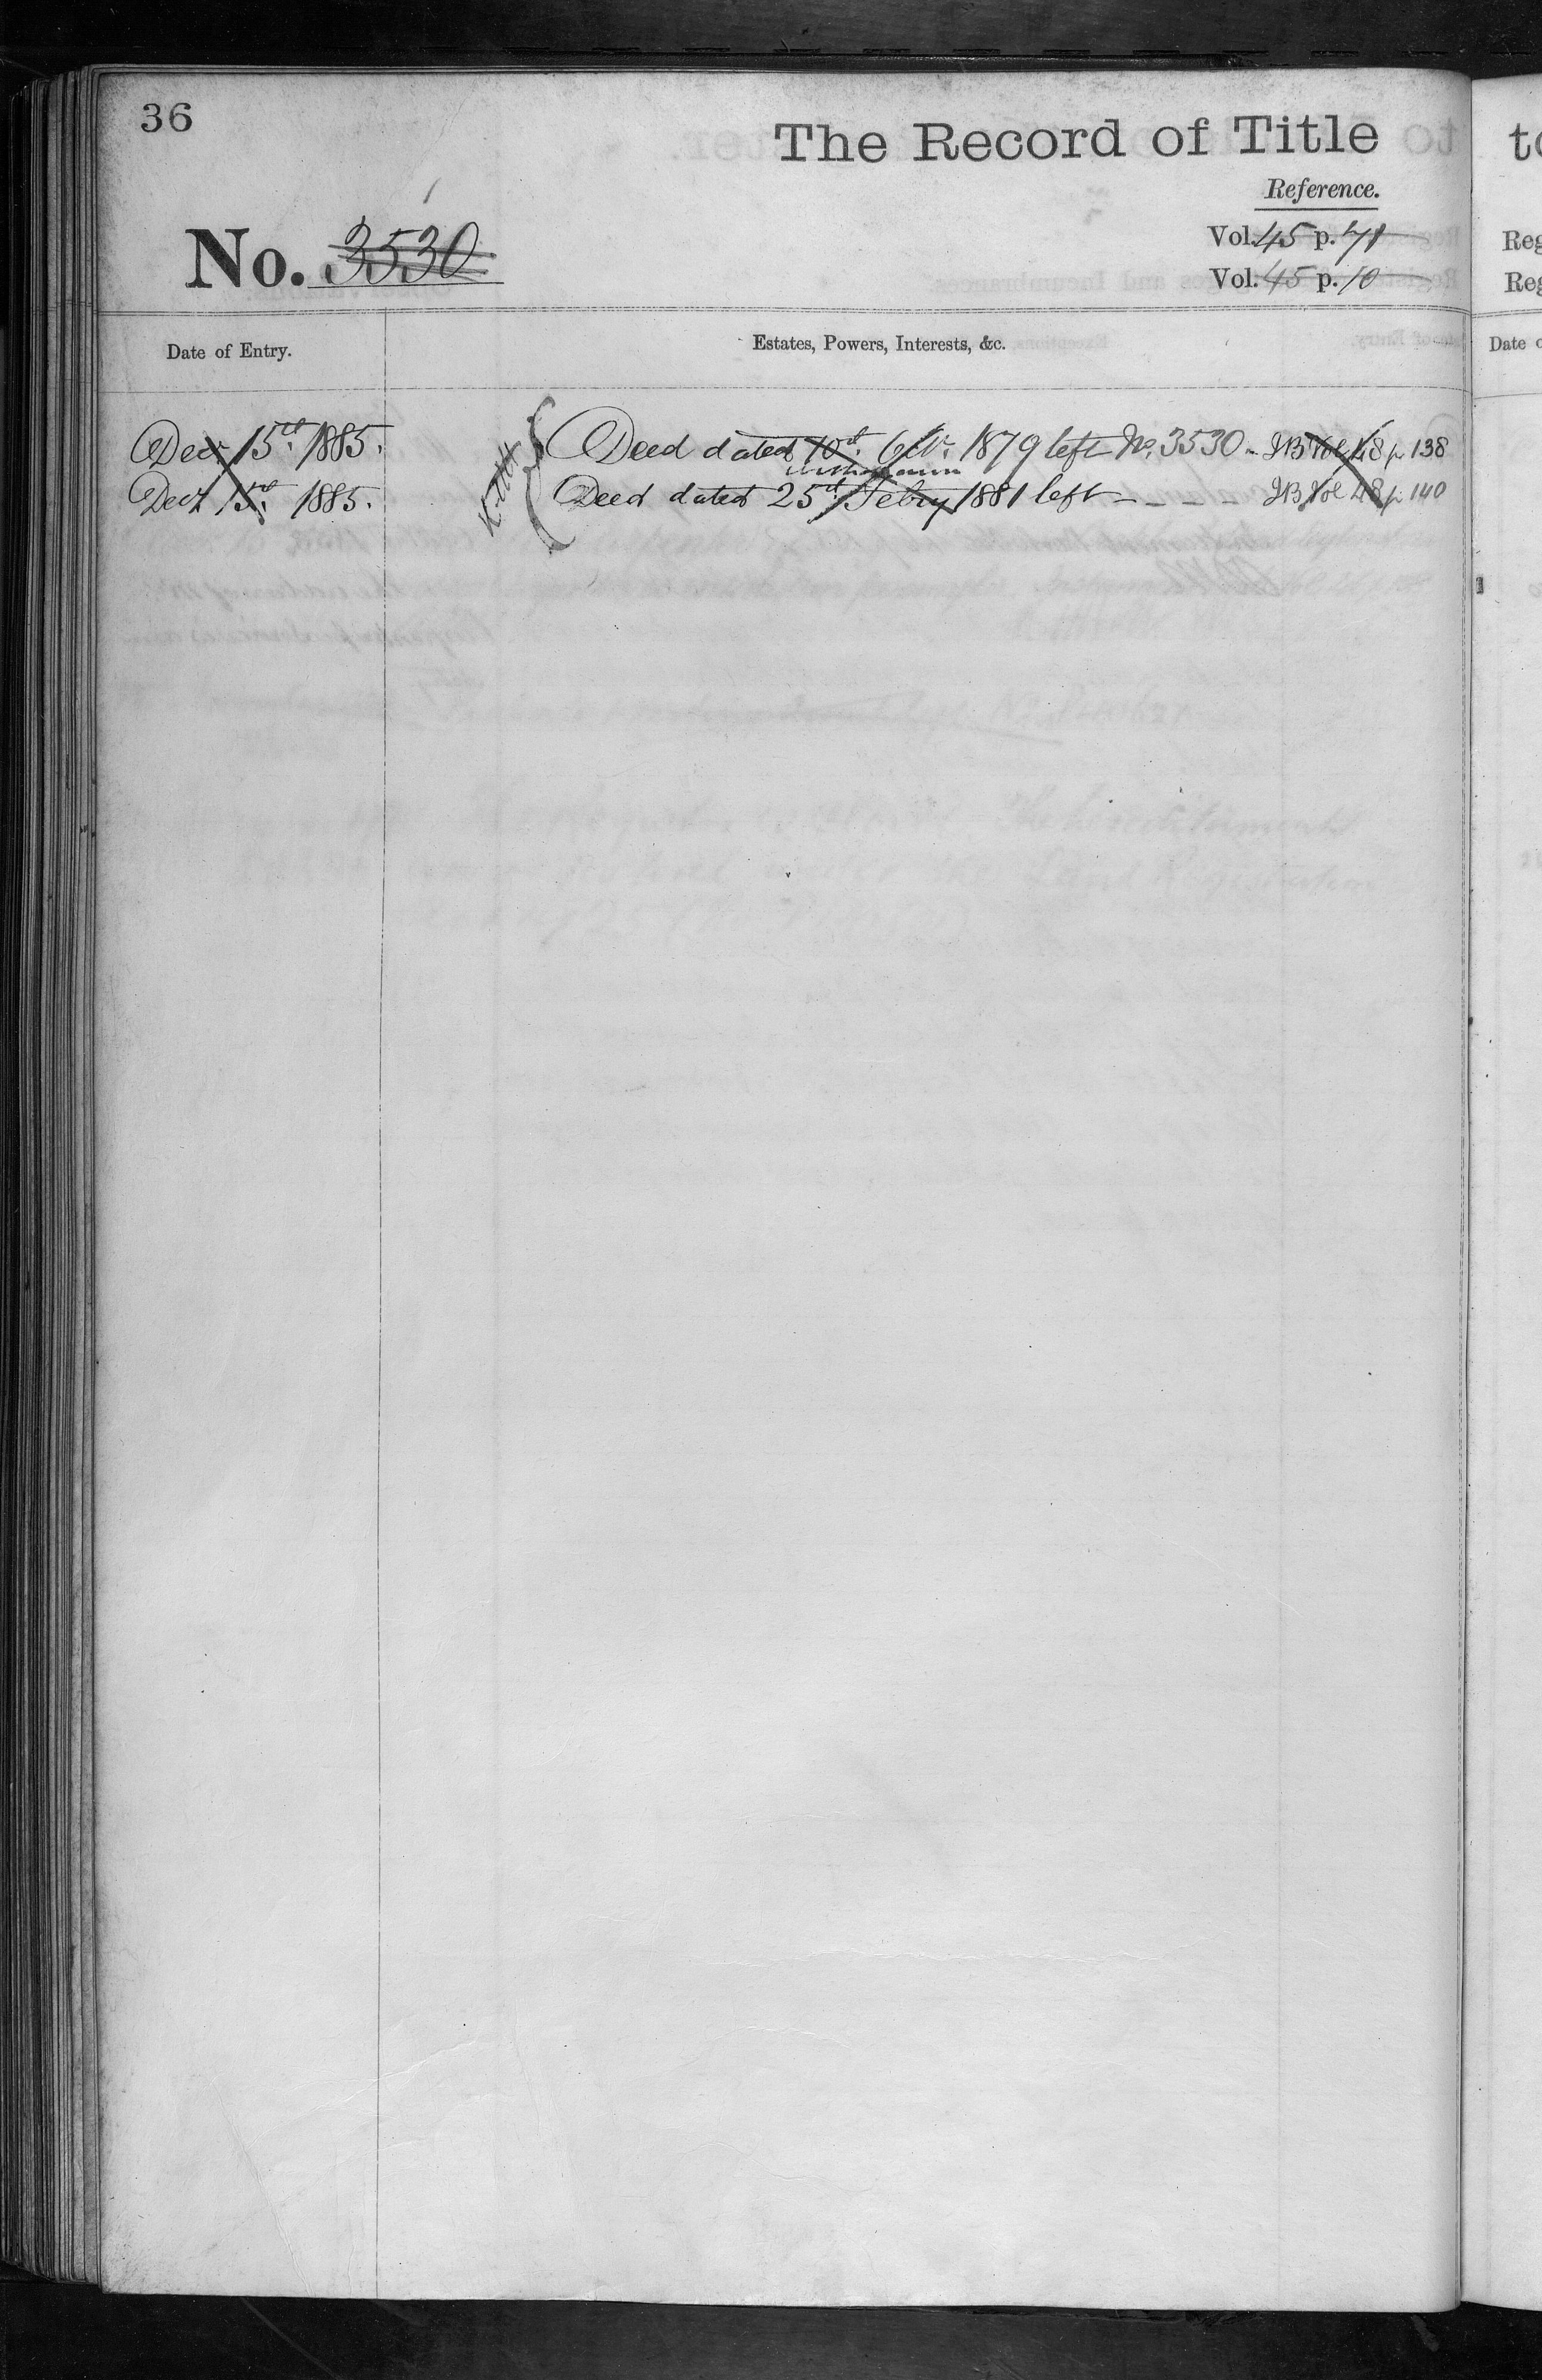 36
The Record of Title
Reference.
No. 3530
Vol. 45 p. 71
Vol. 45 p. 10
Date of Entry.
Estates, Powers, Interests, &c.
Decr 15th 1885. Deed dated 10th Octr. 1879 left No. 3530 - IB Vol 48 p 138
Decr 15th 1885. Deed dated 25th Febry 1881 left - - - - IB Vol 48 p 140
to
Reg
Reg
Date o